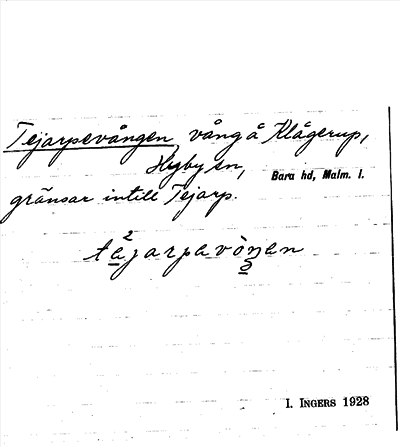 Tejarpevången, vång å Klågerup,
Hyby sn, Bara hd, Malm. l.
gränsar intill Tejarp.
I. INGERS 1928